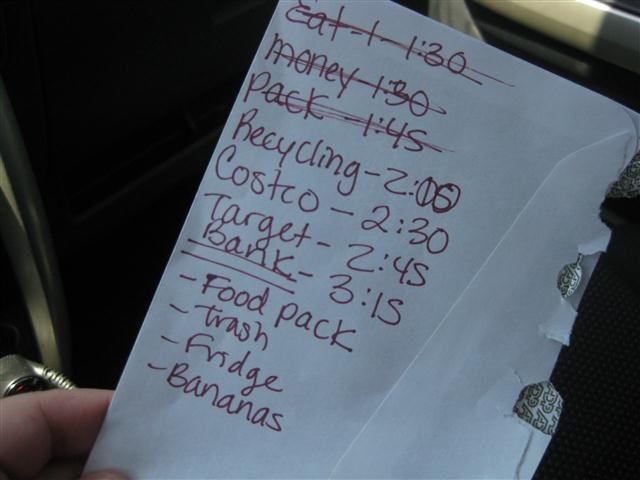 Eat - 1 - 1:30
money 1:30
Pack - 1:45
Recycling - 2:00
Costco - 2:30
Target - 2:45
Bank - 3:15
- Food pack
- Trash
- Fridge
- Bananas